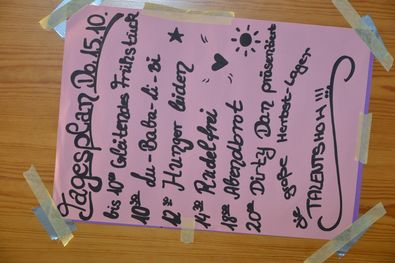 Tagesplan Do 15.10.
bis 10⁰⁰ Gleitendes Frühstück
10³⁰ du-Baba-di-bi
12³⁰ Hunger leiden
14³⁰ Rudelfrei
18⁰⁰ Abendbrot
20⁰⁰ Dirty Dan präsentiert
große Herbst-Lager
TALENTSHOW!!!